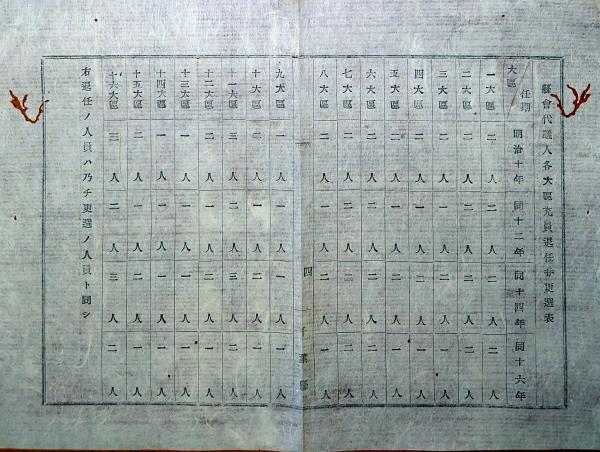 縣會代議人各大區充員退任并更選表
大區 任期 明治十年 同十二年 同十四年 同十六年
一大區 二人 二人 二人 二人
二大區 二人 二人 二人 二人
三大區 二人 一人 二人 一人
四大區 二人 一人 二人 一人
五大區 二人 一人 二人 一人
六大區 二人 二人 二人 二人
七大區 二人 二人 二人 二人
八大區 一人 二人 一人 二人
四 千葉縣
九大區 一人 一人 一人 一人
十大區 二人 一人 二人 一人
十一大區 三人 二人 三人 二人
十二大區 二人 一人 二人 一人
十三大區 一人 一人 一人 一人
十四大區 一人 一人 一人 一人
十五大區 二人 一人 二人 一人
十六大區 三人 二人 三人 二人
右退任ノ人員ハ乃チ更選ノ人員ト同シ